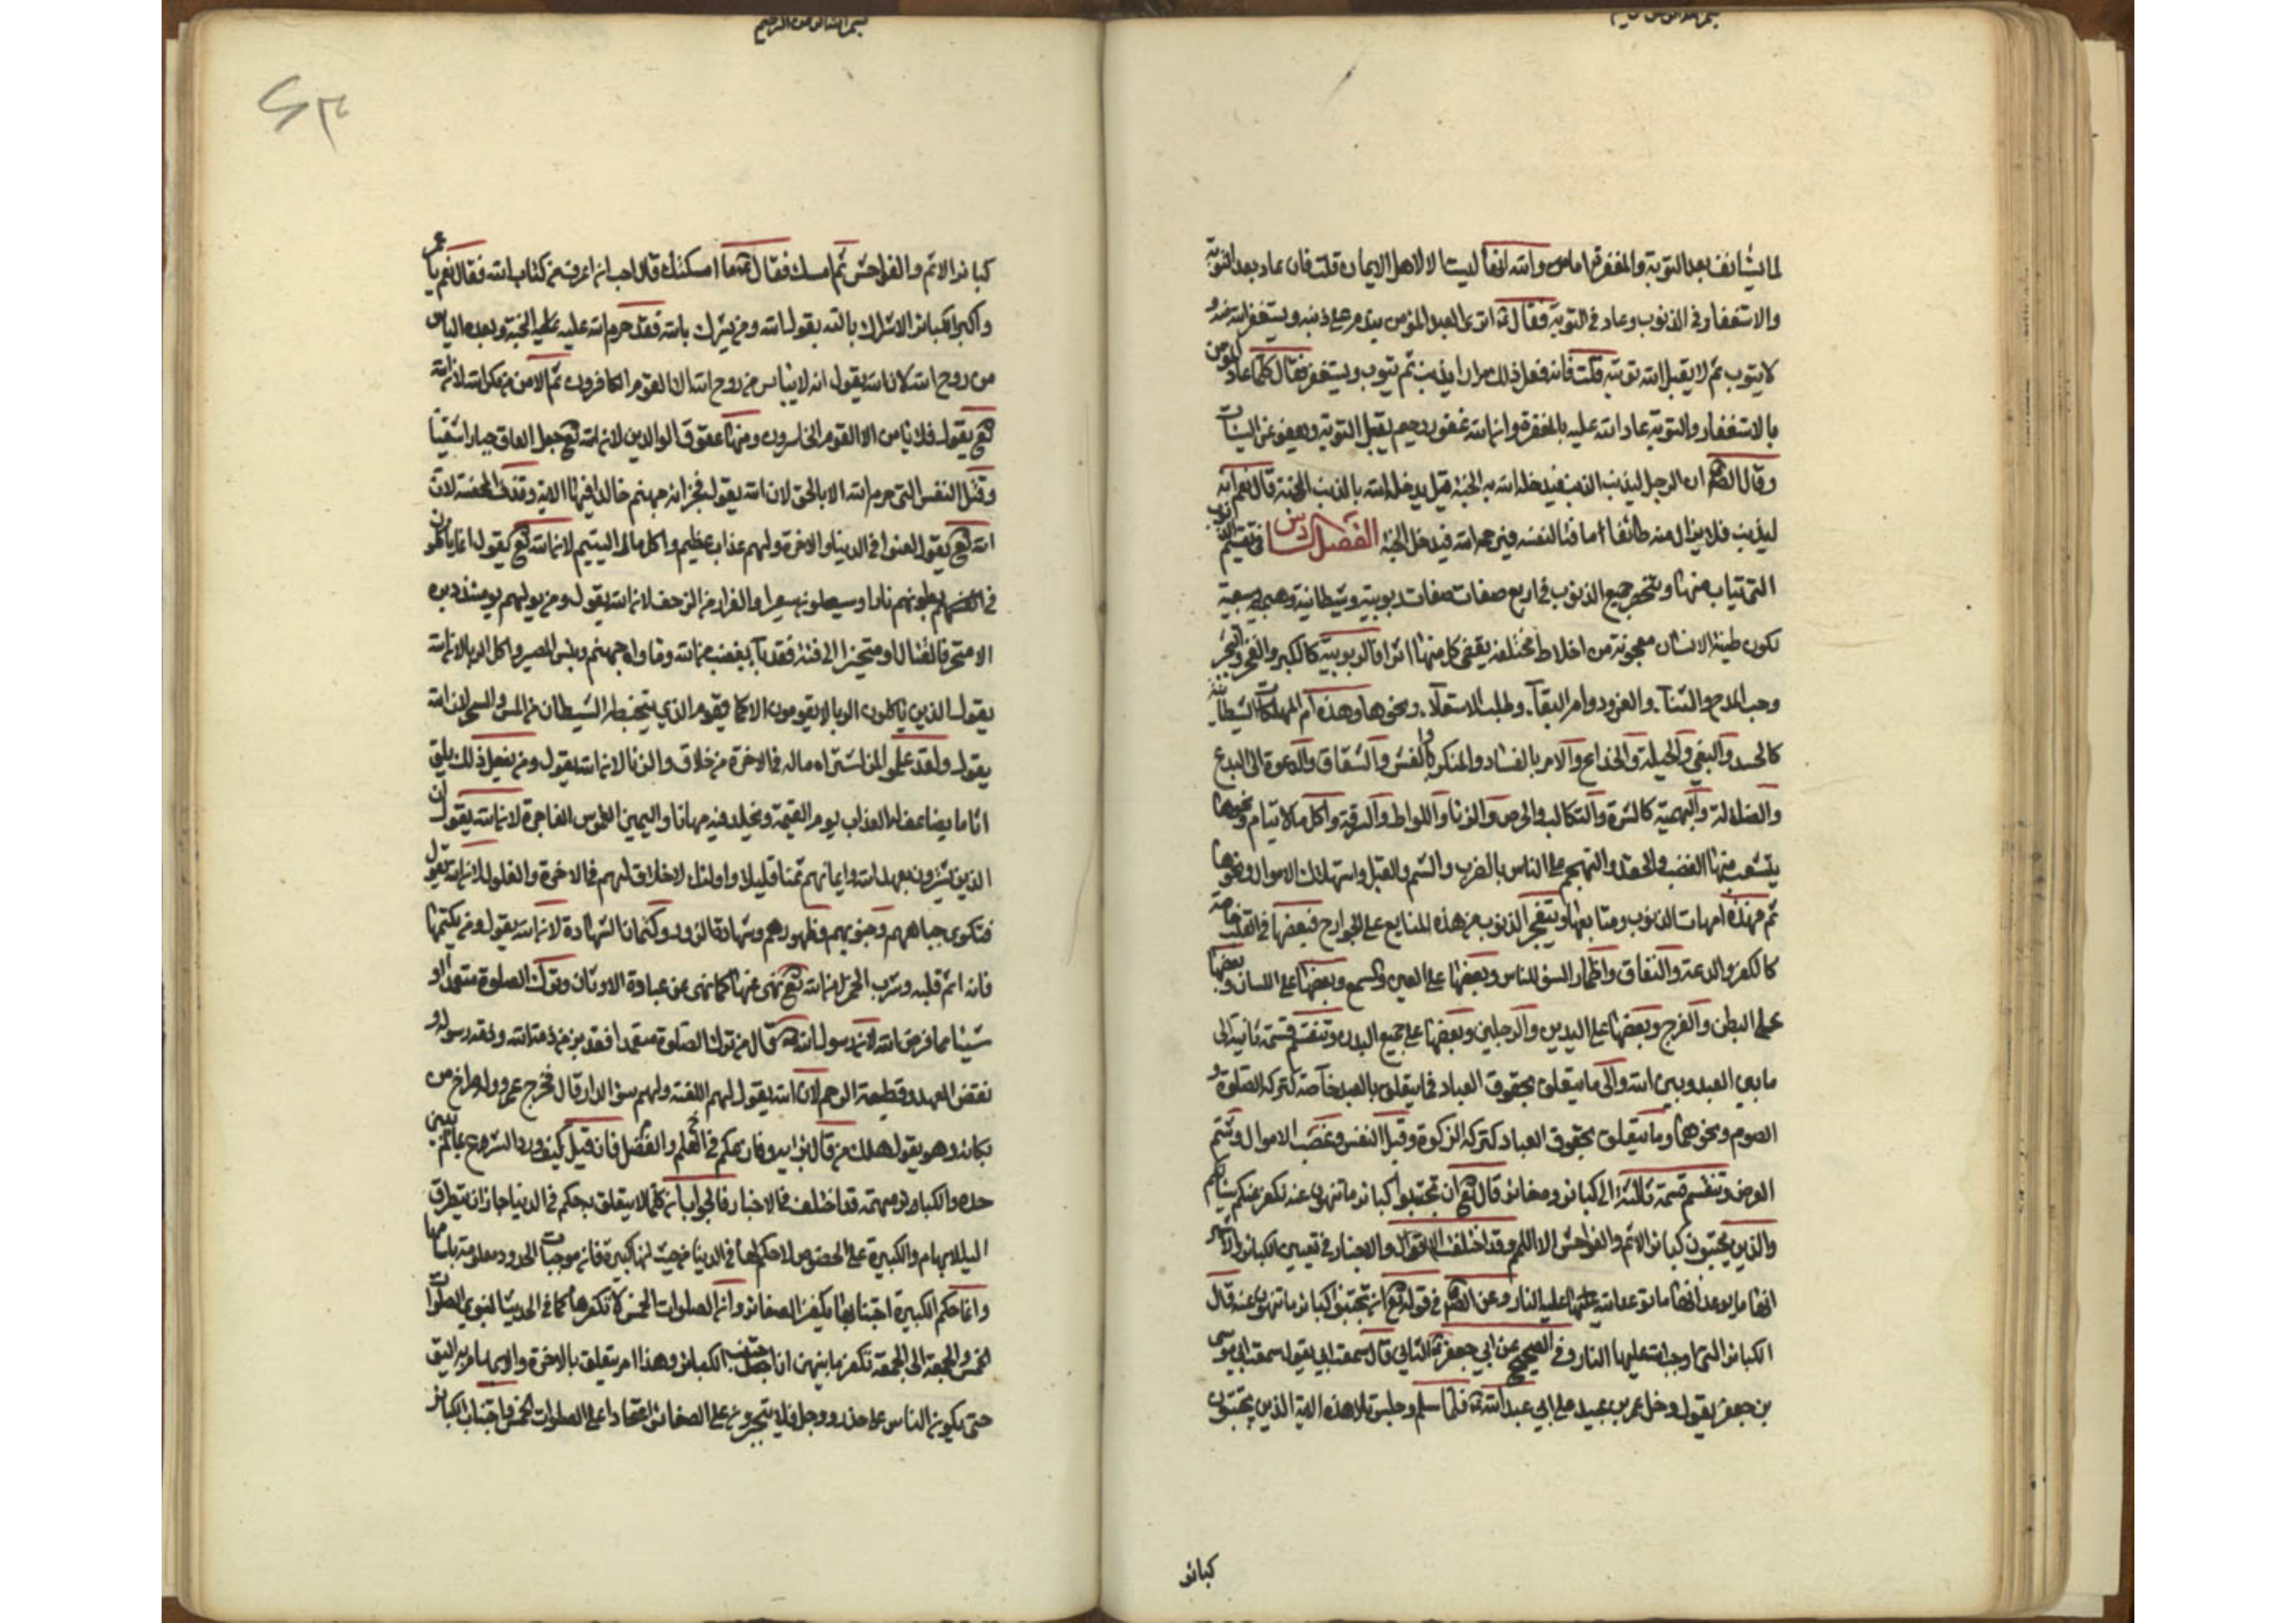 بسم الله الرحمن الرحيم
لما يستانف بعد التوبة والمغفرة اما والله انها ليست الا لاهل الايمان قلت فان عاد بعد التوبة
والاستغفار في الذنوب وعاد في التوبة فقال اترى العبد المؤمن يندم على ذنبه ويستغفر الله منه و
لا يتوب ثم لا يقبل الله توبته قلت فانه فعل ذلك مرارا يذنب ثم يتوب ويستغفر فقال كلما عاد المؤمن
بالاستغفار والتوبة عاد الله عليه بالمغفرة وان الله غفور رحيم يقبل التوبة ويعفو عن السيئات
وقال الصادق ان الرجل ليذنب الذنب فيدخله الله به الجنة قيل يدخله الله بالذنب الجنة قال نعم انه
ليذنب فلا يزال منه خائفا ماقتا لنفسه فيرحمه الله فيدخل الجنة الفصل السادس في تقسيم الذنوب
التي يتاب منها وينحصر جميع الذنوب في اربع صفات صفات ربوبية وشيطانية وبهيمية وسبعية
لكون طينة الانسان معجونة من اخلاط مختلفة يقتضي كل منها اثرا فالربوبية كالكبر والفخر والجبر
وحب المدح والثناء والعز ودوام البقاء وطلب الاستعلاء ونحوها وهذه ام المهلكات الشيطانية
كالحسد والبغي والحيلة والخداع والامر بالفساد والمنكر والغش والشقاق والدعوة الى البدع
والضلالة والبهيمية كالشره والتكالب والحرص والزنا واللواط والسرقة واكل مال الايتام ونحوها
يتشعب منها الغضب والحقد والتهجم على الناس بالضرب والشتم والقتل واستهلاك الاموال ونحوها
ثم فهذه امهات الذنوب ومنابعها ويتفجر الذنوب من هذه المنابع على الجوارح فبعضها في القلب خاصة
كالكفر والبدعة والنفاق واظهار السوء للناس وبعضها على العين والسمع وبعضها على اللسان وبعضها
على البطن والفرج وبعضها على اليدين والرجلين وبعضها على جميع البدن وتنقسم قسمة ثانية الى
ما بين العبد وبين الله والى ما يتعلق بحقوق العباد فما يتعلق بالعبد خاصة كتركه الصلوة و
الصوم ونحوهما وما يتعلق بحقوق العباد كتركه الزكوة وقتل النفس وغصب الاموال وشتم
العرض وتنقسم قسمة ثالثة الى كبائر وصغائر قال تع ان تجتنبوا كبائر ما تنهون عنه نكفر عنكم سيئاتكم
والذين يجتنبون كبائر الاثم والفواحش الا اللمم وقد اختلفت الاقوال والاخبار في تعيين الكبائر والاشهر
انها ما توعد الله عليها النار وعن الصادق في قوله تع ان تجتنبوا كبائر ما تنهون عنه قال
الكبائر التي اوجب الله عليها النار وفي الصحيح عن ابي جعفر الثاني قال سمعت ابي يقول سمعت ابي موسى
بن جعفر يقول دخل عمرو بن عبيد على ابي عبد الله فلما سلم وجلس تلا هذه الاية الذين يجتنبون
كبائر
بسم الله الرحمن الرحيم
كبائر الاثم والفواحش ثم امسك فقال له ما اسكتك قال احب ان اعرف من كتاب الله فقال نعم يا عمرو
واكبر الكبائر الاشراك بالله يقول الله ومن يشرك بالله فقد حرم الله عليه الجنة وبعده الياس
من روح الله لان الله يقول انه لا يياس من روح الله الا القوم الكافرون ثم الامن من مكر الله لان الله
تع يقول فلا يامن الا القوم الخاسرون ومنها عقوق الوالدين لان الله تع جعل العاق جبارا شقيا
وقتل النفس التي حرم الله الا بالحق لان الله يقول فجزاؤه جهنم خالدا فيها الاية وقذف المحصنة لان
الله تع يقول لعنوا في الدنيا والاخرة ولهم عذاب عظيم واكل مال اليتيم لان الله تع يقول انما ياكلون
في بطونهم نارا وسيصلون سعيرا والفرار من الزحف لان الله يقول ومن يولهم يومئذ دبره
الا متحرفا لقتال او متحيزا الى فئة فقد باء بغضب من الله وماواه جهنم وبئس المصير واكل الربا لان الله
يقول الذين ياكلون الربا لا يقومون الا كما يقوم الذي يتخبطه الشيطان من المس والسحر لان الله
يقول ولقد علموا لمن اشتراه ماله في الاخرة من خلاق والزنا لان الله يقول ومن يفعل ذلك يلق
اثاما يضاعف له العذاب يوم القيمة ويخلد فيه مهانا واليمين الغموس الفاجرة لان الله يقول ان
الذين يشترون بعهد الله وايمانهم ثمنا قليلا اولئك لا خلاق لهم في الاخرة والغلول لان الله يقول
فتكوى جباههم وجنوبهم وظهورهم وشهادة الزور وكتمان الشهادة لان الله يقول ومن يكتمها
فانه اثم قلبه وشرب الخمر لان الله تع نهى عنها كما نهى عن عبادة الاوثان وترك الصلوة متعمدا او
شيئا مما فرض الله لان رسول الله قال من ترك الصلوة متعمدا فقد برئ من ذمة الله وذمة رسوله و
نقض العهد وقطيعة الرحم لان الله يقول لهم اللعنة ولهم سوء الدار قال فخرج عمرو وله صراخ من
بكائه وهو يقول هلك من قال برايه ونازعكم في العلم والفضل فان قيل كيف ورد الشرع بما لم يبين
حده والكبائر مبهمة قد اختلف في الاخبار فالجواب ان كلما لا يتعلق به حكم في الدنيا جاز ان يتطرق
اليه الابهام والكبيرة على الخصوص لا حكم لها في الدنيا من حيث انها كبيرة فان موجبات الحدود معلومة باساميها
وانما حكم الكبيرة اجتنابها يكفر الصغائر وان الصلوات الخمس لا تكفرها كما في الحديث النبوي الصلوات
الخمس والجمعة الى الجمعة تكفر ما بينهن ان اجتنبت الكبائر وهذا امر يتعلق بالاخرة والابهام به اليق
حتى يكون الناس على حذر ووجل فلا يتجرون على الصغائر اعتمادا على الصلوات الخمس واجتناب الكبائر